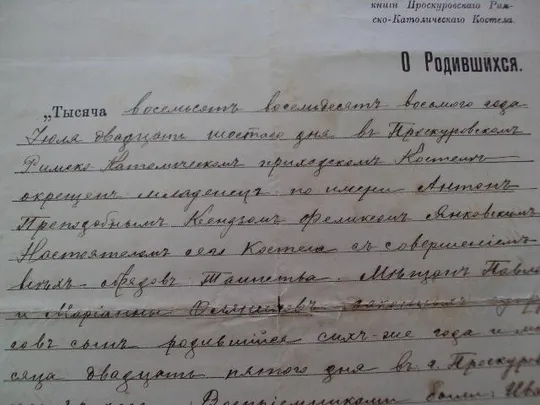 книги Проскуровскаго Рим-
ско-Католическаго Костела.
О Родившихся.
„Тысяча восемьсотъ восемьдесятъ восьмого года
Іюля двадцать шестого дня въ Проскуровскомъ
Римско-Католическомъ приходскомъ Костелѣ
окрещенъ младенецъ по имени Антонъ
Преподобнымъ Ксендзомъ Феликсомъ Янковскимъ
Настоятелемъ сего Костела съ совершеніемъ
всѣхъ обрядовъ Таинства. Мѣщанъ Павла
и Маріанны законныхъ супру
говъ сынъ, родившійся сихъ-же года и мѣ
сяца двадцать пятого дня въ г. Проскуров
Воспріемниками были: Ива